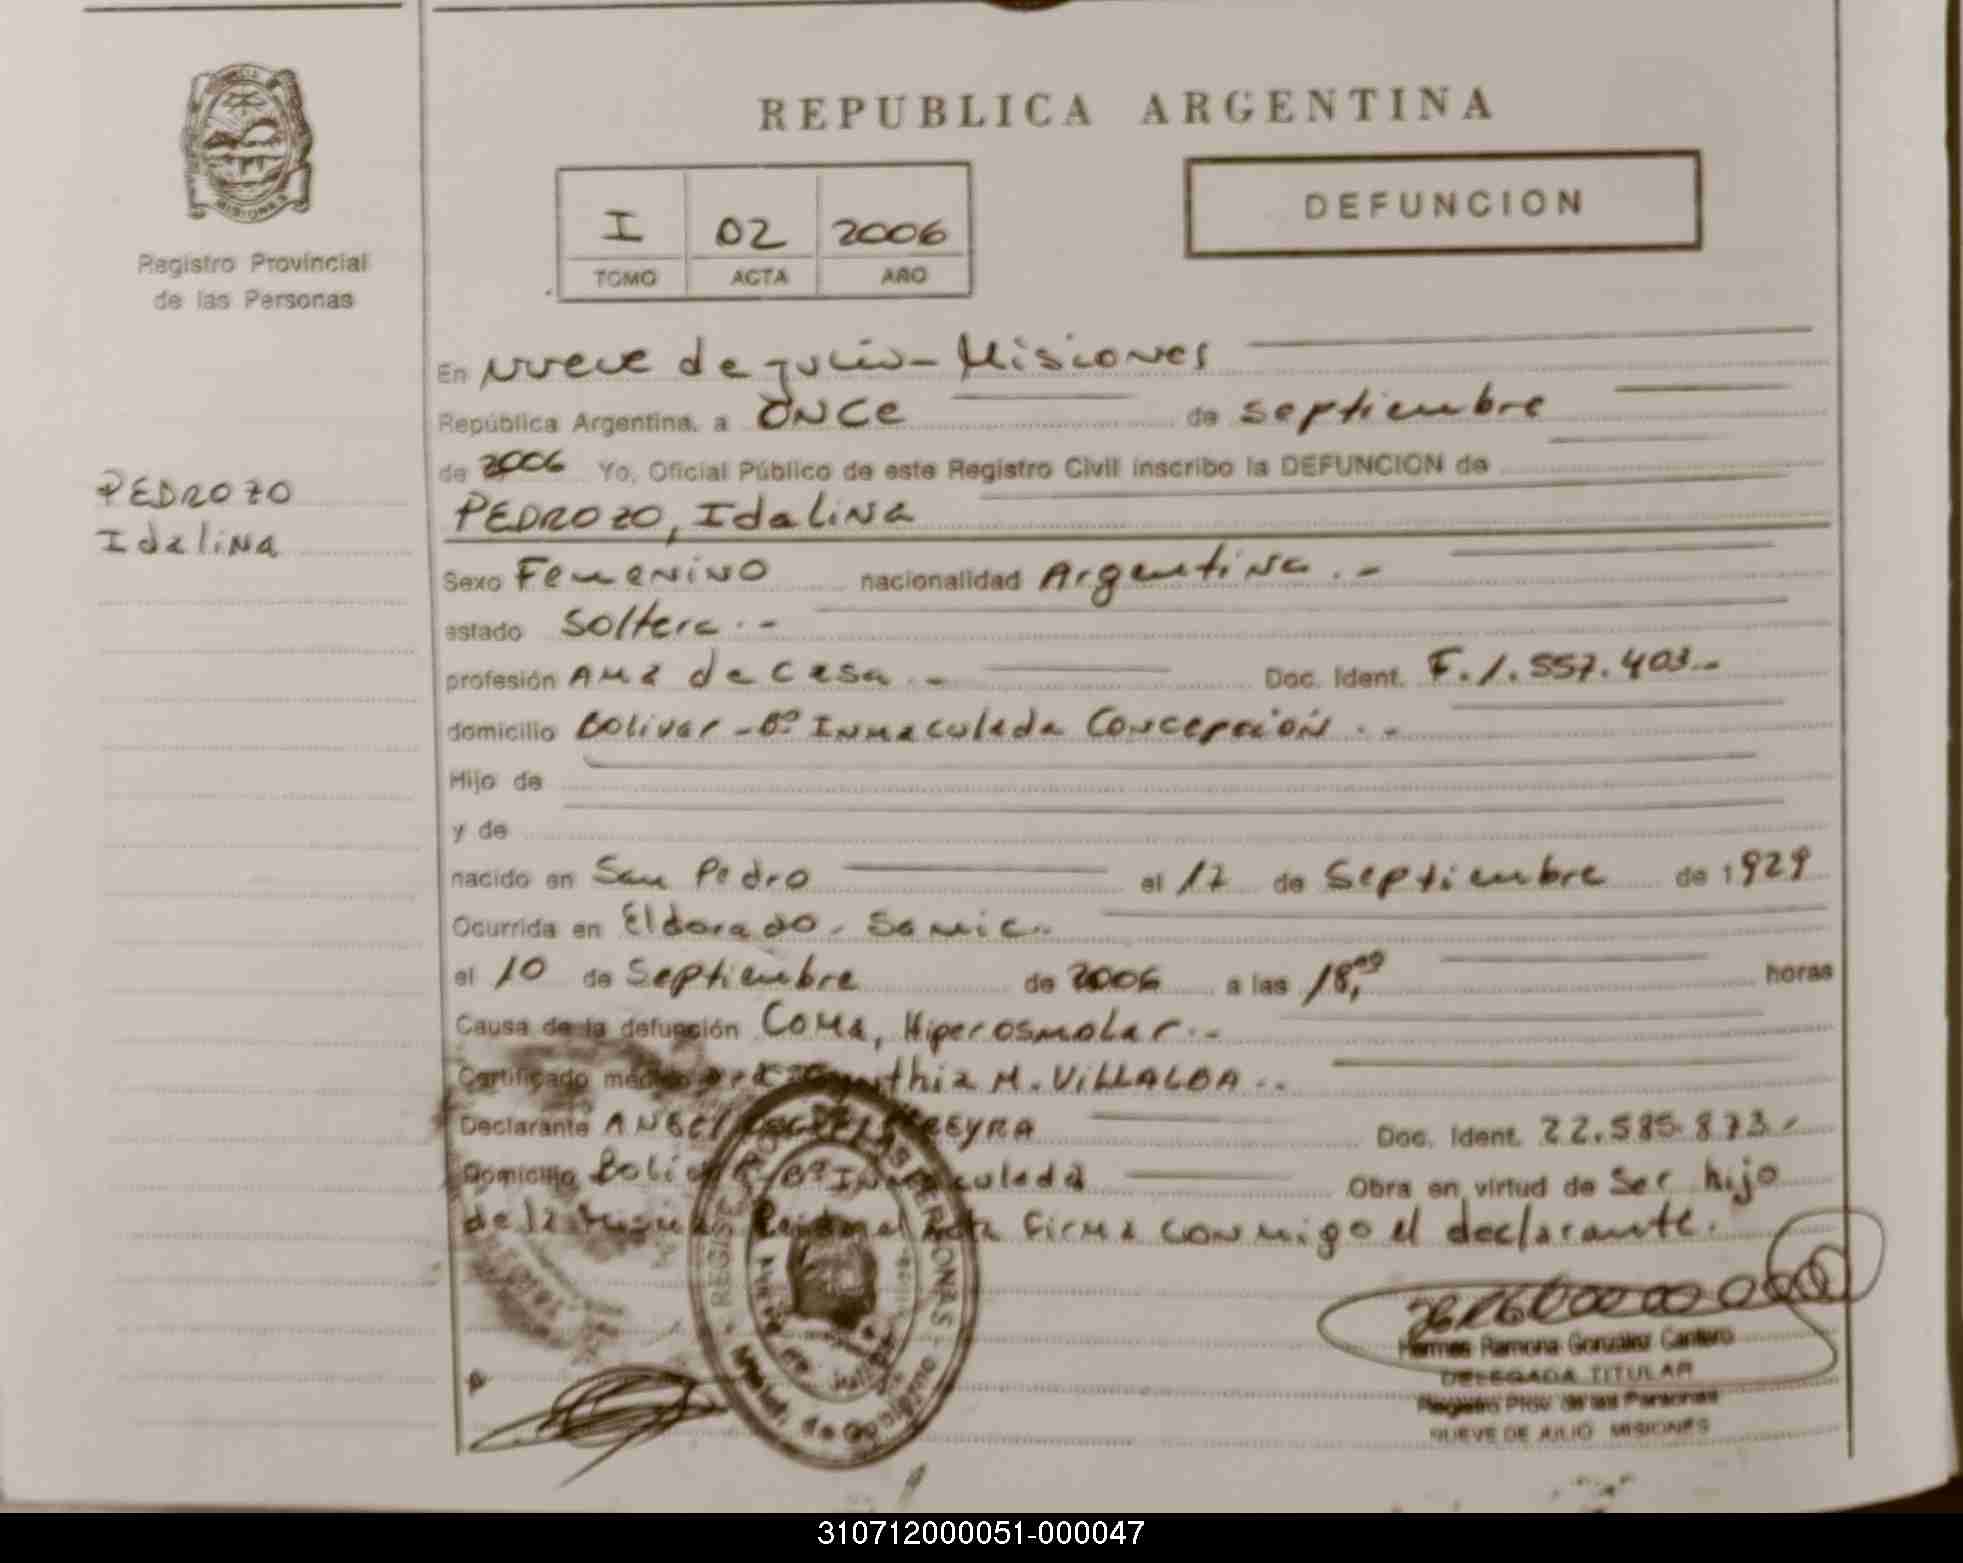 REPUBLICA ARGENTINA
DEFUNCION
I 02 2006
TOMO ACTA AÑO
MISIONES
Registro Provincial
de las Personas
PEDROZO
Idalina
En Nueve de Julio - Misiones
República Argentina, a ONCE de septiembre
de 2006 Yo, Oficial Público de este Registro Civil inscribo la DEFUNCION de
PEDROZO, Idalina
Sexo Femenino nacionalidad Argentina.-
estado Soltera.-
profesión Ama de Casa.- Doc. Ident. F.1.557.403.-
domicilio Bolivar - Bº Inmaculada Concepción.-
Hijo de
y de
nacido en San Pedro el 17 de Septiembre de 1929
Ocurrida en Eldorado. Samic.-
el 10 de Septiembre de 2006 a las 18, horas
Causa de la defunción Coma, Hiperosmolar.-
Certificado médico M. VILLALBA.-
Declarante Doc. Ident. 22.585.873.-
Domicilio Bº Inmaculada Obra en virtud de Ser hijo
de la firma conmigo el declarante.
REGISTRO PERSONAS
Minist. de Gobierno
Hermes Ramona González Cantero
DELEGADA TITULAR
Registro Prov. de las Personas
NUEVE DE JULIO MISIONES
310712000051-000047